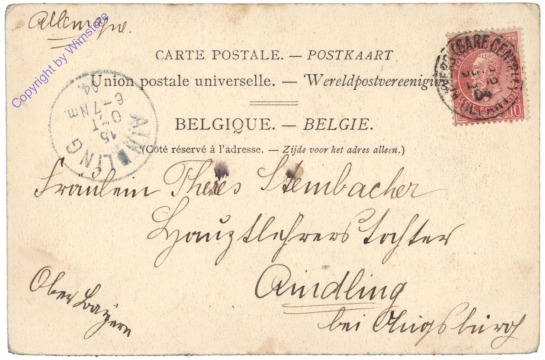 Allemagne.
Copyright by Wimsters
CARTE POSTALE. — POSTKAART
Union postale universelle. — Wereldpostvereeniging
BELGIQUE. — BELGIE.
(Côté réservé à l'adresse. — Zijde voor het adres alleen.)
AINDLING
15
OCT
6-7Nm.
04
10
Fräulein Theres Steinbacher
Hauptlehrerstochter
Aindling
bei Augsburg
Ober Bayern